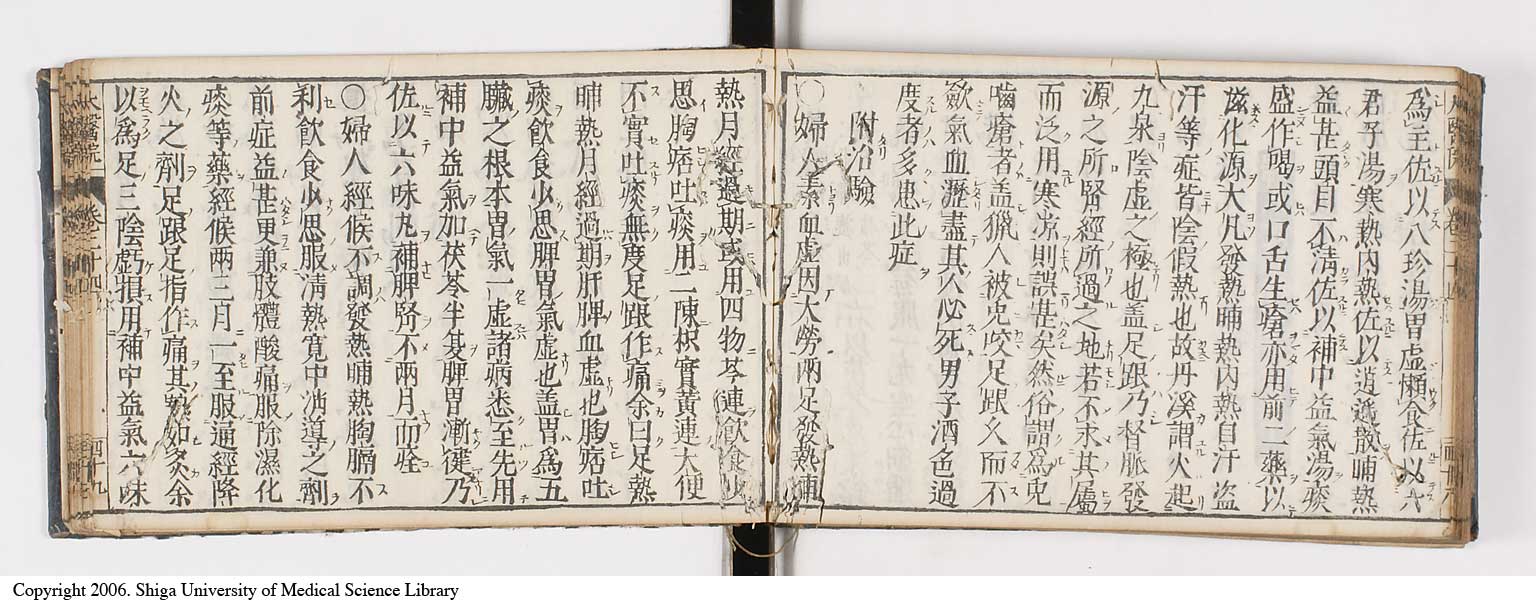 為主佐以八珍湯胃虛懶食佐以六
君子湯寒熱內熱佐以逍遙散晡熱
益甚頭目不清佐以補中益氣湯痰
盛作喝或口舌生瘡亦用前二藥以
滋化源大凡發熱晡熱內熱自汗盗
汗等症皆陰假熱也故丹溪謂火起
九泉陰虛之極也盖足跟乃督脈發
源之所腎經所過之地若不求其屬
而泛用寒凉則誤甚矣然俗謂為兎
嚙瘡者盖獵人被兎咬足跟久而不
斂氣血瀝盡其人必死男子酒色過
度者多患此症
附治驗
〇婦人素血虛因大勞兩足發熱晡
熱月經過期或用四物芩連飲食少
思胸痞吐痰用二陳枳實黄連大便
不實吐痰無度足跟作痛余曰足熱
晡熱月經過期肝脾血虛也胸痞吐
痰飲食少思脾胃氣虛也盖胃為五
臟之根本胃氣一虛諸病悉至先用
補中益氣加茯苓半夏脾胃漸健乃
佐以六味丸補脾腎不兩月而痊
〇婦人經候不調發熱晡熱胸膈不
利飲食少思服清熱寛中消導之劑
前症益甚更兼肢體酸痛服除濕化
痰等藥經候兩三月一至服通經降
火之劑足跟足指作痛其熱如炙余
以為足三陰虧損用補中益氣六味
四十九
Copyright 2006. Shiga University of Medical Science Library